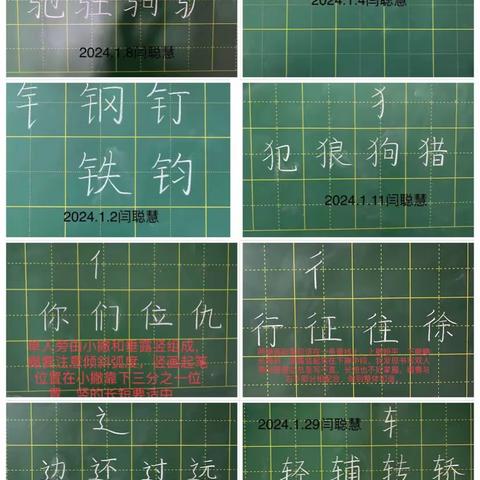 驰 驻 驹 驴
2024.1.8闫聪慧
2024.1.4闫聪慧
钅 钢 钉
铁 钧
2024.1.2闫聪慧
犭
犯 狼 狗 猎
2024.1.11闫聪慧
亻
你 们 位 仇
单人旁由小撇和垂露竖组成,
撇要注意倾斜弧度，竖画起笔
位置在小撇靠下三分之一位
置，竖的长短要适中
彳
行 征 往 徐
辶
边 还 过 远
2024.1.29闫聪慧
车
轻 辅 转 轿